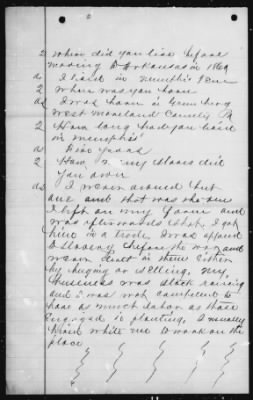 2 Where did you live before
moving to Arkansas in 1860
As I lived in Memphis Tenn
2 Where was you born
As I was born in Greensburg
West Moreland County Pa
2 How long had you lived
in Memphis
As Five years
2 How many slaves did
you own
As I never owned but
one and that was the one
I left on my farm and
was afterwards shot. I got
him in a trade. I was opposed
to Slavery before the war and
never dealt in them either
by buying or selling. My
business was stock raising
and I was not compelled to
have as much labor as those
engaged in planting. I usually
hired white men to work on the
place